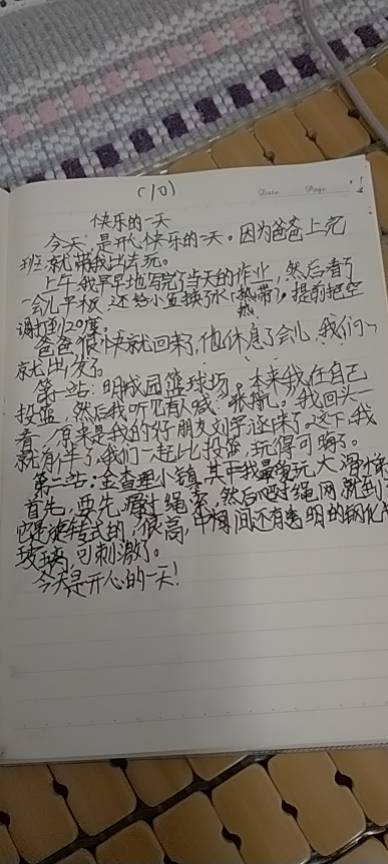 (10)
Date Page
快乐的一天
今天,是开心快乐的一天。因为爸爸上完
班就带我出去玩。
上午我早早地写完了当天的作业,然后看了
一会儿平板,还给小鱼换了水(热带),提前把空
热
调打到20度。
爸爸很快就回来了,他休息了会儿,我们
就出发了。
第一站:明成园篮球场,本来我在自己
投篮,然后我听见有人喊,我回头一
看,原来是我的好朋友刘宇还来了。这下,我
就有伴了,我们一起比投篮,玩得可嗨了。
第二站:金查理小镇,其中我最爱玩大滑梯
首先,要先爬绳索,然后爬绳网就到
它是旋转式的,很高,中间还有透明的钢化
玻璃,可刺激了。
今天是开心的一天!